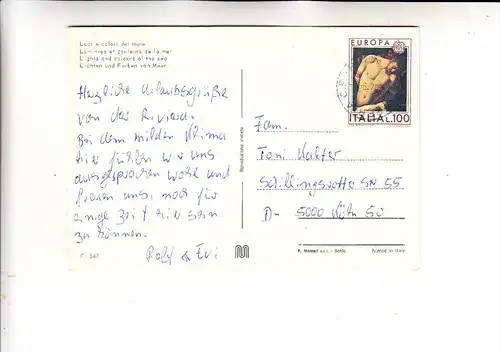 Luci e colori del mare
Lumières et couleurs de la mer
Lights and colours of the sea
Lichten und Farben von Meer
Herzliche Urlaubsgrüße
von der Riviera.
Bei dem milden Klima
hier fühlen wir uns
ausgesprochen wohl und
freuen uns, noch für
einige Zeit hier sein
zu können.
Rolf & Evi
Riproduzione vietata
EUROPA
ITALIA L.100
Fam.
Toni Walter
D- 5000 Köln 50
Printed in Italy